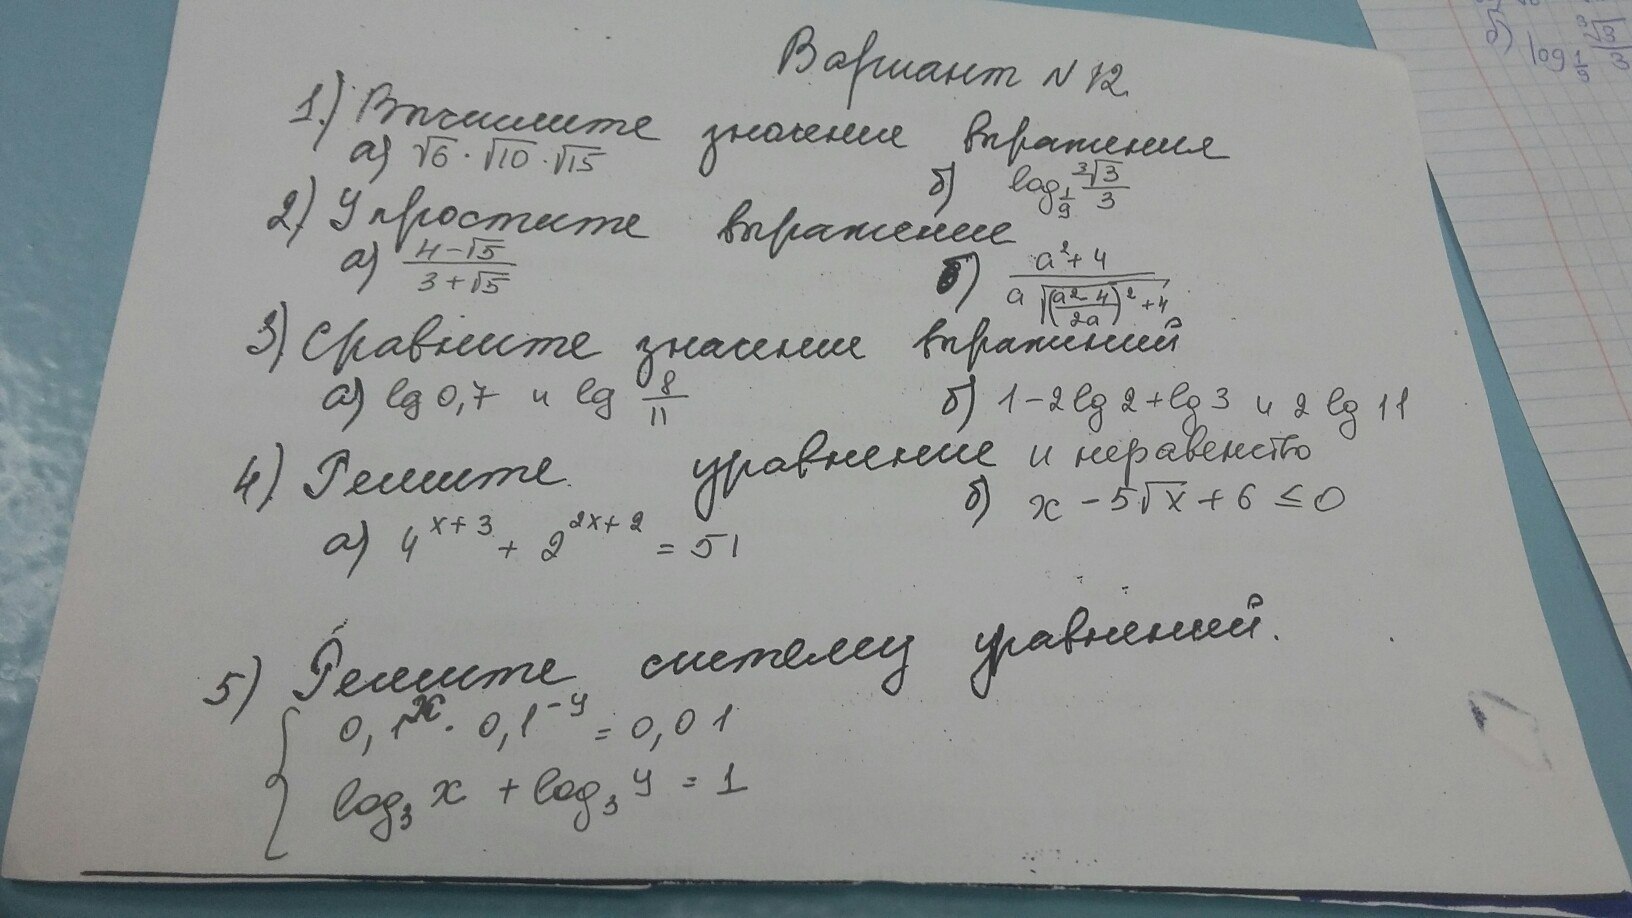 Вариант N 12.
1.) Вычислите значение выражения
а) √6 · √10 · √15 б) log_{1/9} ∛3/3
2) Упростите выражение
а) (4-√5)/(3+√5) б) (a²+4)/(a√(((a²-4)/(2a))²+4))
3) Сравните значение выражений
а) lg 0,7 и lg 8/11 б) 1-2lg2+lg3 и 2lg11
4) Решите уравнение и неравенство
а) 4^{x+3} + 2^{2x+2} = 51 б) x - 5√x + 6 ≤ 0
5) Решите систему уравнений.
{ 0,1^x · 0,1^{-y} = 0,01
log₃ x + log₃ y = 1
б) log_{1/9} ∛3/3